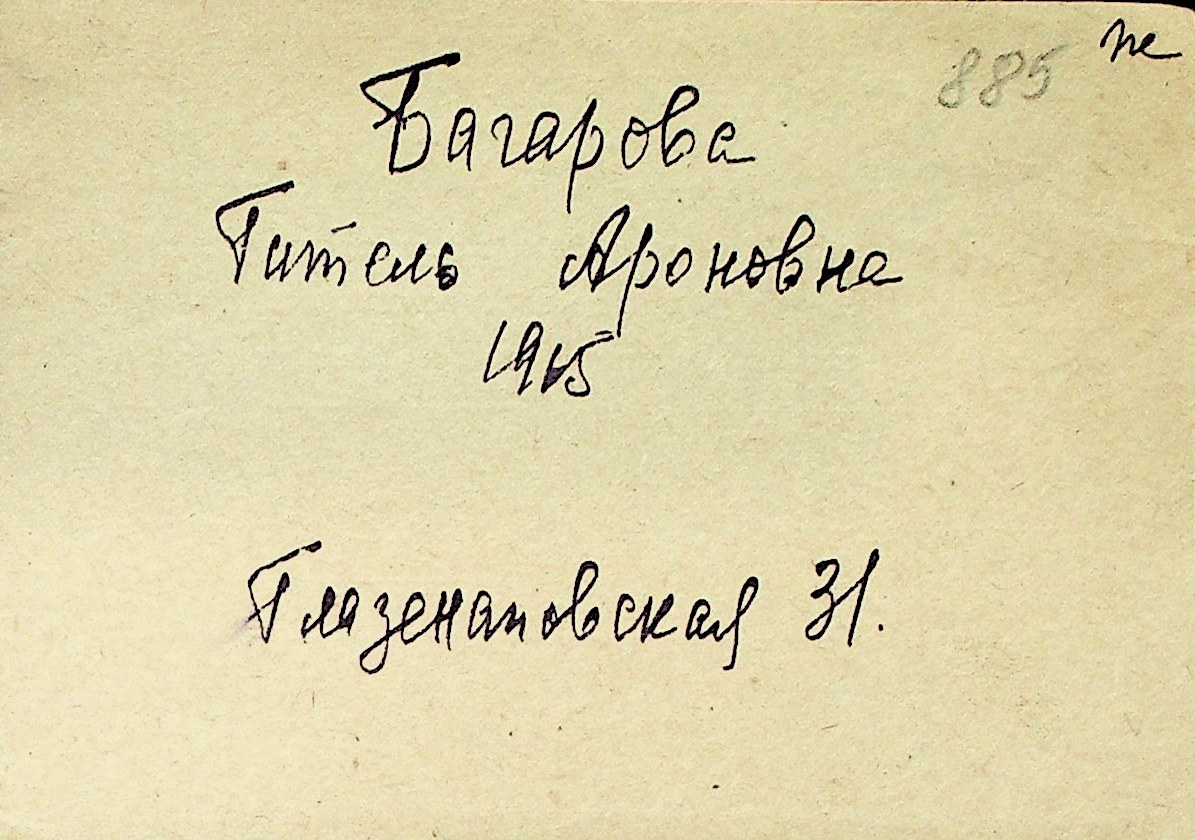 885 же
Багарова
Гитель Ароновна
1915
Глазенаповская 31.